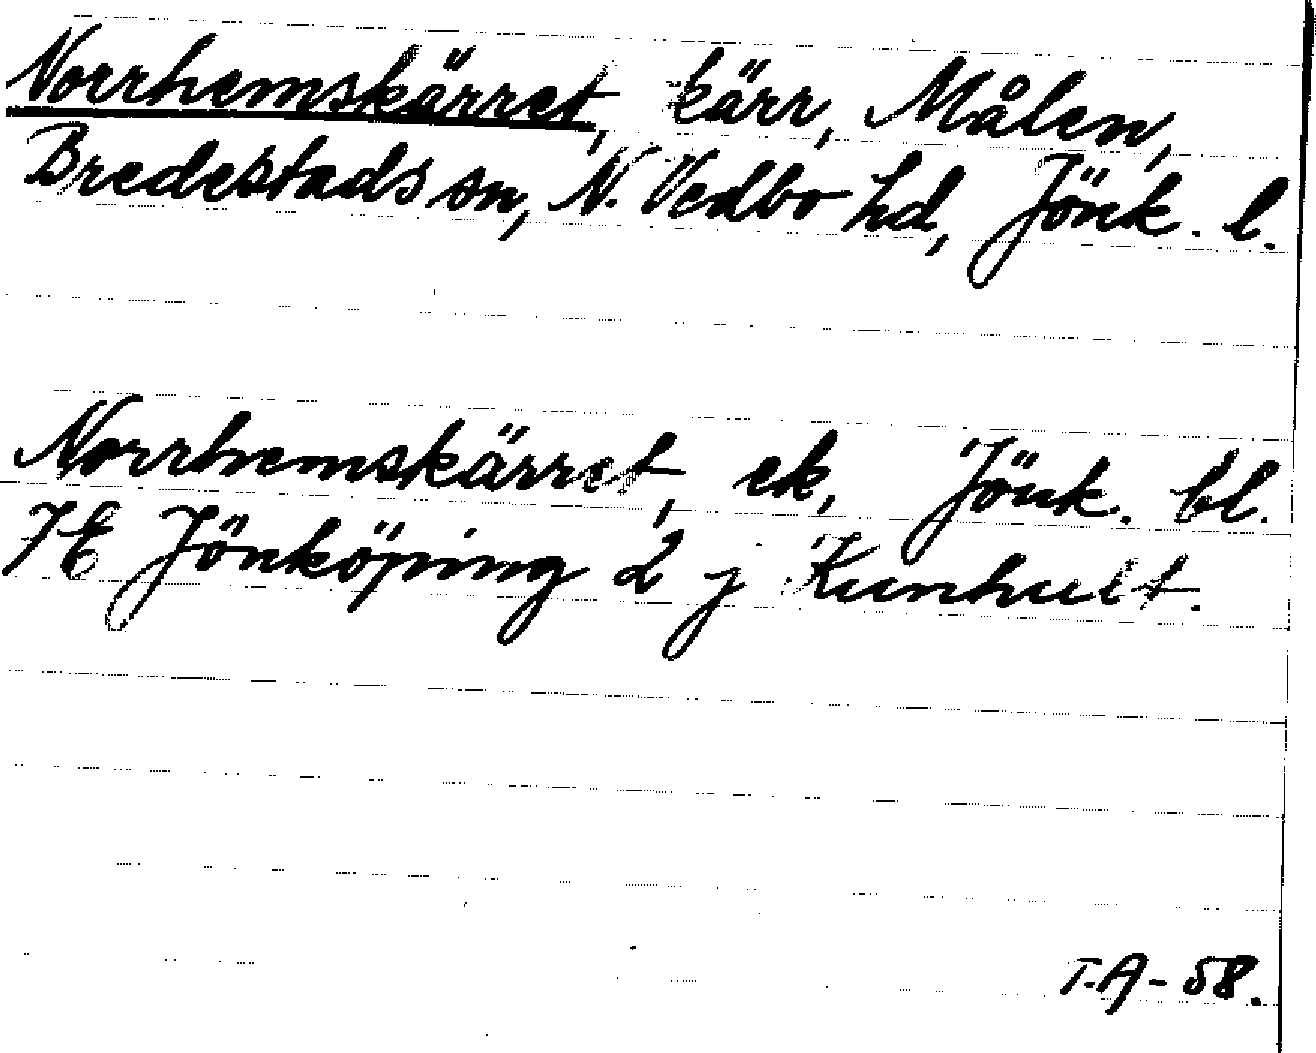 Norrhemskärret, kärr, Målen,
Bredestads sn, N. Vedbo hd, Jönk. l.
Norrhemskärret, ek, Jönk. bl.
7E Jönköping 2 j Kunhult.
T.A-58.